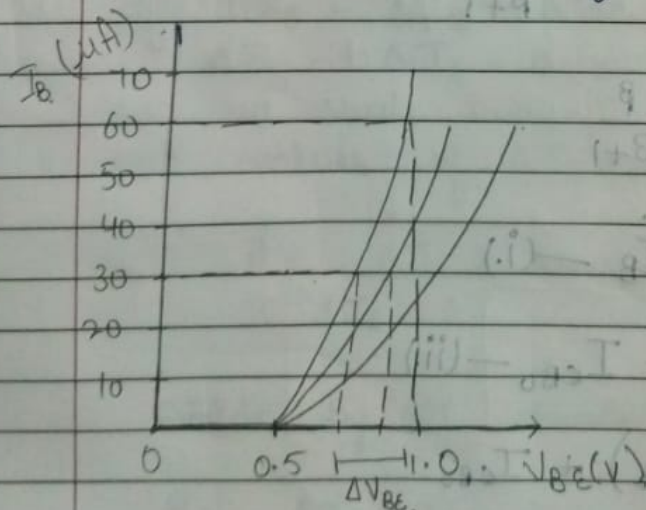 I_B (μA)
70
60
50
40
30
20
10
0 0.5 1.0 V_BE (V)
ΔV_BE